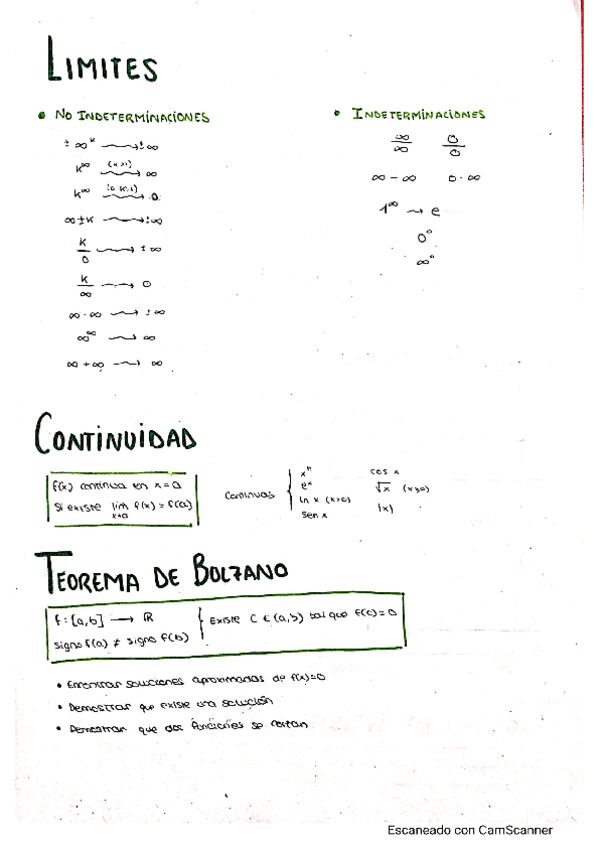 LIMITES
• NO INDETERMINACIONES
± ∞^k → ±∞
k^∞ (k>1) → ∞
k^∞ (0<k<1) → 0
∞ ± k → ±∞
k/0 → ±∞
k/∞ → 0
∞ · ∞ → ±∞
∞^∞ → ∞
∞ + ∞ → ∞
• INDETERMINACIONES
∞/∞ 0/0
∞ - ∞ 0 · ∞
1^∞ → e
0^0
∞^0
CONTINUIDAD
f(x) continua en x = a
Si existe lim x→a f(x) = f(a)
Continuas { x^n cos x
e^x √x (x≥0)
ln x (x>0) |x|
sen x
TEOREMA DE BOLZANO
f: [a,b] → ℝ { Existe C ∈ (a,b) tal que f(c) = 0
signo f(a) ≠ signo f(b)
• Encontrar soluciones aproximadas de f(x)=0
• Demostrar que existe una solución
• Demostrar que dos funciones se cortan
Escaneado con CamScanner